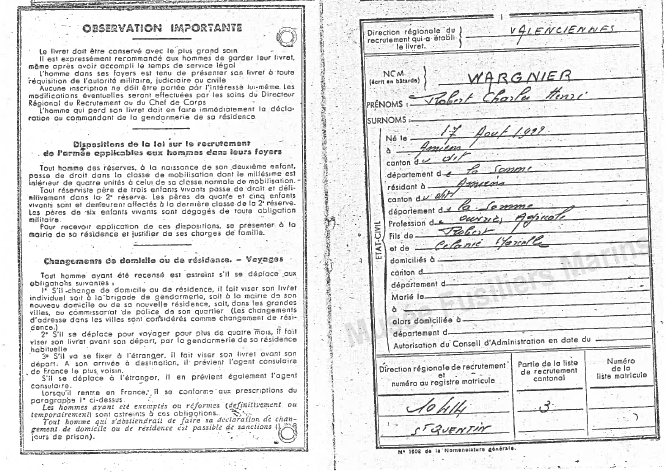 OBSERVATION IMPORTANTE
Le livret doit être conservé avec le plus grand soin
Il est expressément recommandé aux hommes de garder leur livret,
même après avoir accompli le temps de service légal
L'homme dans ses foyers est tenu de présenter son livret à toute
réquisition de l'autorité militaire, judiciaire ou civile
Aucune inscription ne doit être portée par l'intéressé lui-même. Les
modifications éventuelles seront effectuées par les soins du Directeur
Régional du Recrutement ou du Chef de Corps
L'homme qui perd son livret doit en faire immédiatement la décla-
ration au commandant de la gendarmerie de sa résidence
Dispositions de la loi sur le recrutement
de l'armée applicables aux hommes dans leurs foyers
Tout homme des réserves, à la naissance de son deuxième enfant,
passe de droit dans la classe de mobilisation dont le millésime est
inférieur de quatre unités à celui de sa classe normale de mobilisation.
Tout réserviste père de trois enfants vivants passe de droit et défi-
nitivement dans la 2e réserve. Les pères de quatre et cinq enfants
vivants sont et demeurent affectés à la dernière classe de la 2e réserve.
Les pères de six enfants vivants sont dégagés de toute obligation
militaire.
Pour recevoir application de ces dispositions, se présenter à la
mairie de sa résidence et justifier de ses charges de famille.
Changements de domicile ou de résidence. - Voyages
Tout homme ayant été recensé est astreint s'il se déplace aux
obligations suivantes :
1° S'il change de domicile ou de résidence, il fait viser son livret
individuel soit à la brigade de gendarmerie, soit à la mairie de son
nouveau domicile ou de sa nouvelle résidence, soit, dans les grandes
villes, au commissariat de police de son quartier (Les changements
d'adresse dans les villes sont considérés comme changement de rési-
dence.)
2° S'il se déplace pour voyager pour plus de quatre mois, il fait
viser son livret avant son départ, par la gendarmerie de sa résidence
habituelle
3° S'il va se fixer à l'étranger, il fait viser son livret avant son
départ. A son arrivée à destination, il prévient l'agent consulaire
de France le plus voisin.
S'il se déplace à l'étranger, il en prévient également l'agent
consulaire.
Lorsqu'il rentre en France, il se conforme aux prescriptions du
paragraphe 1° ci-dessus.
Les hommes ayant été exemptés ou réformés (définitivement ou
temporairement) sont astreints à ces obligations.
Tout homme qui s'abstiendrait de faire sa déclaration de chan-
gement de domicile ou de résidence est passible de sanctions (
jours de prison).
Direction régionale du
recrutement qui a établi
le livret.
VALENCIENNES
NOM
(écrit en bâtarde)
WARGNIER
PRÉNOMS : Robert Charles Henri
SURNOMS :
ETAT-CIVIL
Né le 17 Août
à Amiens
canton du dit
département de la Somme
résidant à Amiens
canton du dit
département de la Somme
Profession d ouvrier Agricole
Fils de Robert
et de
domicilié s à
canton d
département d
Marié le
à
alors domiciliée à
département d
Autorisation du Conseil d'Administration en date du
Direction régionale de recrutement
et
numéro au registre matricule
Partie de la liste
de recrutement
cantonal
Numéro
de la
liste matricule
3
St QUENTIN
N° 1502 de la Nomenclature générale.